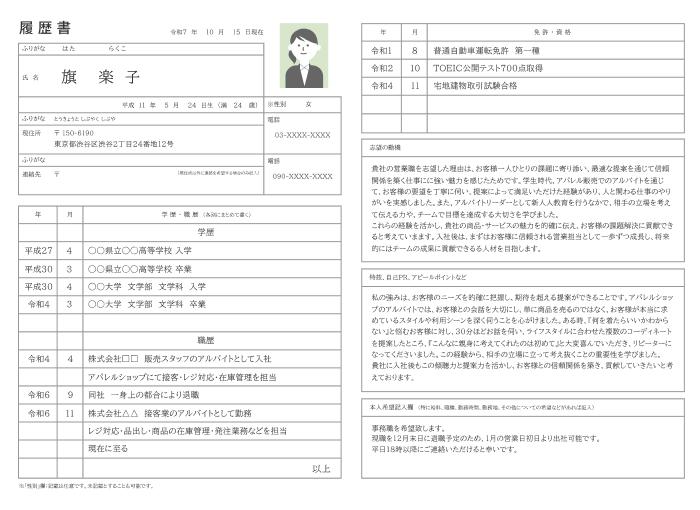 履歴書
令和7 年 10 月 15 日現在
ふりがな はた らくこ
氏 名 旗 楽 子
平成 11 年 5 月 24 日生 (満 24 歳)
※性別 女
ふりがな とうきょうと しぶやく しぶや
電話
現住所 〒150-6190
03-XXXX-XXXX
東京都渋谷区渋谷2丁目24番地12号
ふりがな
電話
連絡先 〒 (現住所以外に連絡を希望する場合のみ記入)
090-XXXX-XXXX
年 月 学歴・職歴 (各別にまとめて書く)
学歴
平成27 4 〇〇県立〇〇高等学校 入学
平成30 3 〇〇県立〇〇高等学校 卒業
平成30 4 〇〇大学 文学部 文学科 入学
令和4 3 〇〇大学 文学部 文学科 卒業
職歴
令和4 4 株式会社□□ 販売スタッフのアルバイトとして入社
アパレルショップにて接客・レジ対応・在庫管理を担当
令和6 9 同社 一身上の都合により退職
令和6 11 株式会社△△ 接客業のアルバイトとして勤務
レジ対応・品出し・商品の在庫管理・発注業務などを担当
現在に至る
以上
※「性別」欄：記載は任意です。未記載とすることも可能です。
年 月 免許・資格
令和1 8 普通自動車運転免許 第一種
令和2 10 TOEIC公開テスト700点取得
令和4 11 宅地建物取引試験合格
志望の動機
貴社の営業職を志望した理由は、お客様一人ひとりの課題に寄り添い、最適な提案を通じて信頼
関係を築く仕事にに強い魅力を感じたためです。学生時代、アパレル販売でのアルバイトを通じ
て、お客様の要望を丁寧に伺い、提案によって満足いただけた経験があり、人と関わる仕事のやり
がいを実感しました。また、アルバイトリーダーとして新人人教育を行うなかで、相手の立場を考え
て伝える力や、チームで目標を達成する大切さを学びました。
これらの経験を活かし、貴社の商品・サービスの魅力を的確に伝え、お客様の課題解決に貢献でき
ると考えています。入社後は、まずはお客様に信頼される営業担当として一歩ずつ成長し、将来
的にはチームの成果に貢献できる人材を目指します。
特技、自己PR、アピールポイントなど
私の強みは、お客様のニーズを的確に把握し、期待を超える提案ができることです。アパレルショッ
プのアルバイトでは、お客様との会話を大切にし、単に商品を売るのではなく、お客様が本当に求
めているスタイルや利用シーンを深く伺うことを心がけました。ある時、「何を着たらいいかわから
ない」と悩むお客様に対し、30分ほどお話を伺い、ライフスタイルに合わせた複数のコーディネート
を提案したところ、「こんなに親身に考えてくれたのは初めて」と大変喜んでいただき、リピーターに
なってくださいました。この経験から、相手の立場に立って考え抜くことの重要性を学びました。
貴社に入社後もこの傾聴力と提案力を活かし、お客様との信頼関係を築き、貢献していきたいと考
えております。
本人希望記入欄 (特に給料、職種、勤務時間、勤務地、その他についての希望などがあれば記入)
事務職を希望致します。
現職を12月末日に退職予定のため、1月の営業日初日より出社可能です。
平日18時以降にご連絡いただけると幸いです。